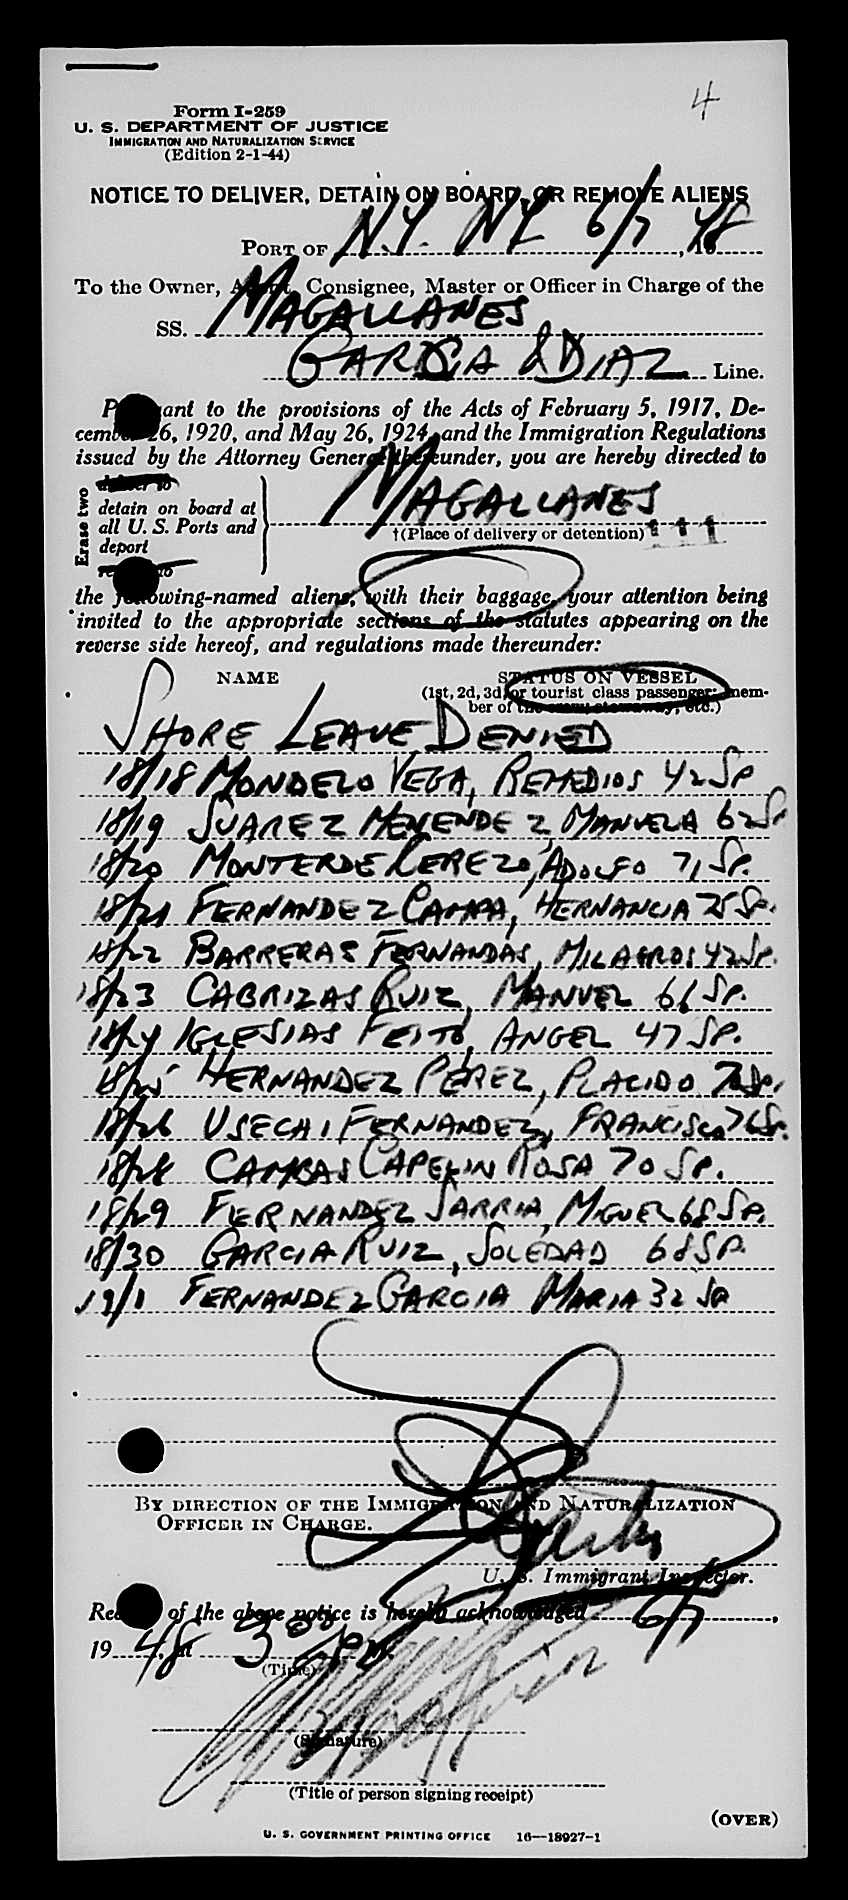 4
Form I-259
U. S. DEPARTMENT OF JUSTICE
IMMIGRATION AND NATURALIZATION SERVICE
(Edition 2-1-44)
NOTICE TO DELIVER, DETAIN ON BOARD, OR REMOVE ALIENS
PORT OF N.Y. NY 6/7, 1948
To the Owner, Agent, Consignee, Master or Officer in Charge of the
SS. MAGALLANES
GARCIA & DIAZ Line.
Pursuant to the provisions of the Acts of February 5, 1917, De-
cember 26, 1920, and May 26, 1924, and the Immigration Regulations
issued by the Attorney General thereunder, you are hereby directed to
Erase two
deliver to
detain on board at
all U. S. Ports and
deport
remove to
MAGALLANES
†(Place of delivery or detention)
the following-named aliens, with their baggage, your attention being
invited to the appropriate sections of the statutes appearing on the
reverse side hereof, and regulations made thereunder:
NAME STATUS ON VESSEL
(1st, 2d, 3d, or tourist class passenger; mem-
ber of the crew, stowaway, etc.)
SHORE LEAVE DENIED
18/18 MONDELO VEGA, REMEDIOS 42 SP
18/19 SUAREZ MENENDEZ, MANUELA 62 SP
18/20 MONTERDE CEREZO, ADOLFO 71 SP.
18/21 FERNANDEZ CAMPA, HERNANCIA 75 SP.
18/22 BARRERAS FERNANDAS, MILAGROS 42 SP.
18/23 CABRIZAS RUIZ, MANUEL 66 SP.
18/24 IGLESIAS FEITO, ANGEL 47 SP.
18/25 HERNANDEZ PEREZ, PLACIDO 70 SP.
18/26 USECHI FERNANDEZ, FRANCISCO 76 SP.
18/28 CAMBAS CAPELIN ROSA 70 SP.
18/29 FERNANDEZ SARRIA, MIGUEL 68 SP.
18/30 GARCIA RUIZ, SOLEDAD 68 SP.
19/1 FERNANDEZ GARCIA MARIA 32 SP
BY DIRECTION OF THE IMMIGRATION AND NATURALIZATION
OFFICER IN CHARGE.
U. S. Immigrant Inspector.
Receipt of the above notice is hereby acknowledged 6/7,
1948, at 3 00 PM
(Time)
(Signature)
(Title of person signing receipt)
(OVER)
U. S. GOVERNMENT PRINTING OFFICE 16—18927-1